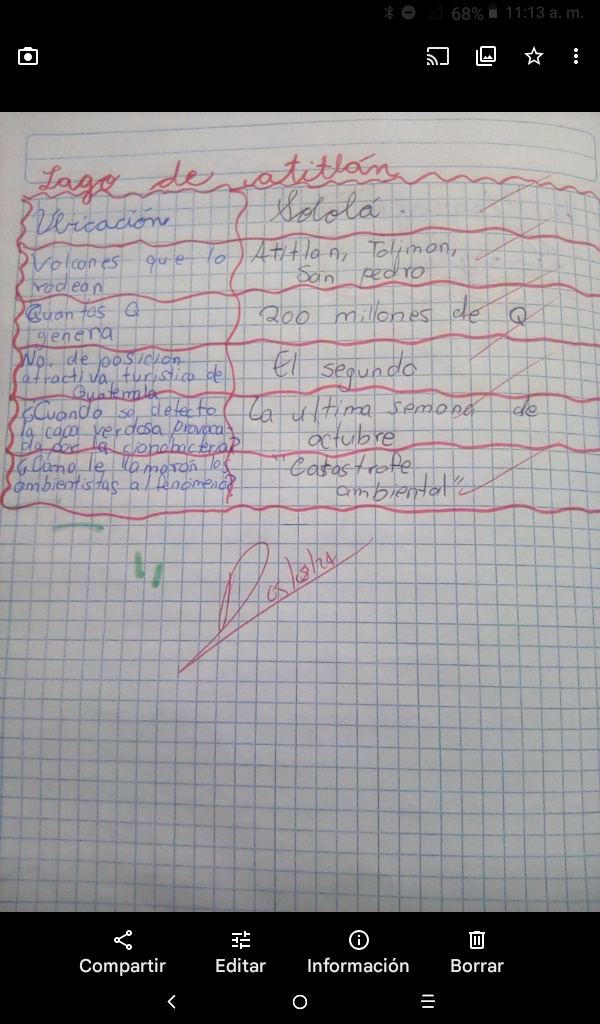 68% 11:13 a. m.
Lago de atitlán
Ubicación
Sololá.
Volcanes que lo
rodean
Atitlan, Toliman,
San pedro
Quantos Q
genera
200 millones de Q
No. de posición
atractiva turistica de
Guatemala
El segundo
¿Cuando se detecto
la capa verdosa provoca
da por la cianobacteria?
La ultima semana de
octubre
¿Cómo le llamaron los
ambientistas al fenómeno?
"Catastrofe
ambiental"
05/08/24
Compartir
Editar
Información
Borrar